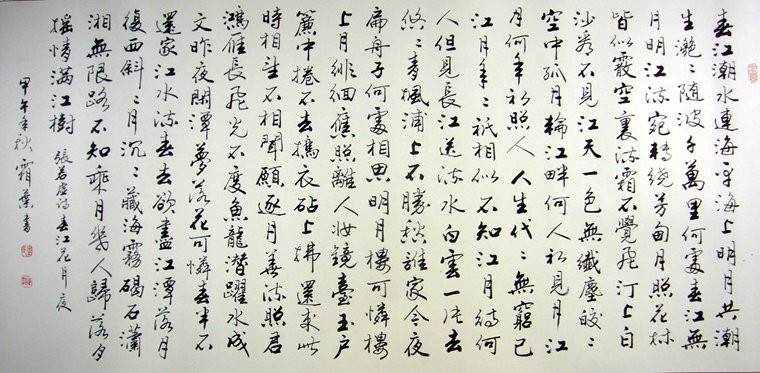 春江潮水連海平海上明月共潮
生灔々随波千萬里何處春江無
月明江流宛轉繞芳甸月照花林
皆似霰空裏流霜不覺飛汀上白
沙看不見江天一色無纖塵皎々
空中孤月輪江畔何人初見月江
月何年初照人人生代々無窮已
江月年々祇相似不知江月待何
人但見長江送流水白雲一片去
悠々青楓浦上不勝愁誰家今夜
扁舟子何處相思明月樓可憐樓
上月徘徊應照離人妝鏡臺玉户
簾中捲不去搗衣砧上拂還來此
時相望不相聞願逐月華流照君
鴻雁長飛光不度魚龍潛躍水成
文昨夜閑潭夢落花可憐春半不
還家江水流春去欲盡江潭落月
復西斜々月沉々藏海霧碣石瀟
湘無限路不知乘月幾人歸落月
摇情滿江樹 張若虛詩春江花月夜
甲午年秋霜葉書